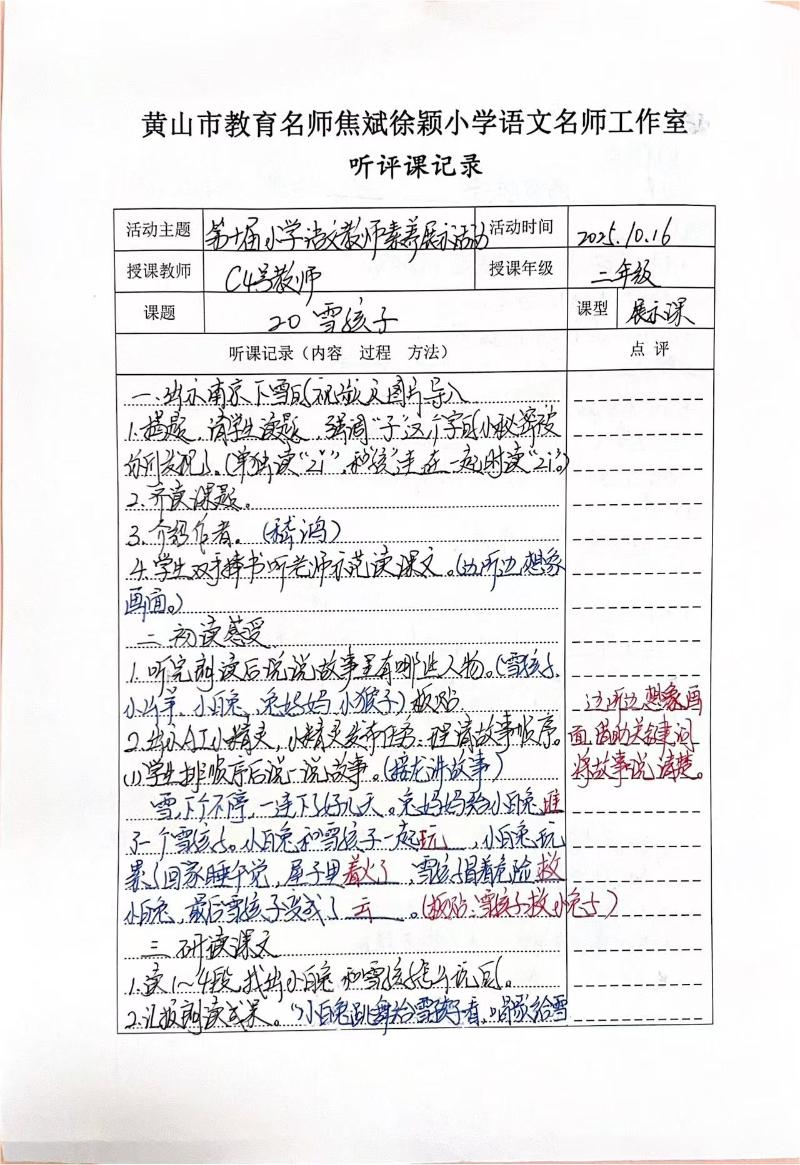 黄山市教育名师焦斌徐颖小学语文名师工作室
听评课记录
活动主题 第十届小学语文教师素养展示活动 活动时间 2025.10.16
授课教师 C4号教师 授课年级 二年级
课题 20 雪孩子 课型 展示课
听课记录（内容 过程 方法） 点 评
一.出示南京下雪的视频及图片导入
1.揭题，请学生读题，强调"子"这个字的小秘密被
你们发现了。(单独读"zǐ"，和"孩"连在一起时读"zi"。)
2.齐读课题。
3.介绍作者。(嵇鸿)
4.学生双手捧书听老师示范读课文。(边听边想象
画面。)
二.初读感受
1.听完朗读后说说故事里有哪些人物。(雪孩子、
小山羊、小白兔、兔妈妈、小猴子)板贴
2.出示AI小精灵，小精灵发布任务：理清故事顺序。
(1)学生排顺序后说一说故事。(接龙讲故事)
雪，下个不停，一连下了好几天。兔妈妈给小白兔堆
了一个雪孩子。小白兔和雪孩子一起玩，小白兔玩
累了回家睡午觉，屋子里着火了，雪孩子冒着危险救
小白兔，最后雪孩子变成了云。(板贴：雪孩子救小兔子)
三.研读课文
1.读1~4段，找出小白兔和雪孩子怎么玩的。
2.汇报朗读成果。"小白兔跳舞给雪孩子看，唱歌给雪
边听边想象画
面，借助关键词
将故事说清楚。